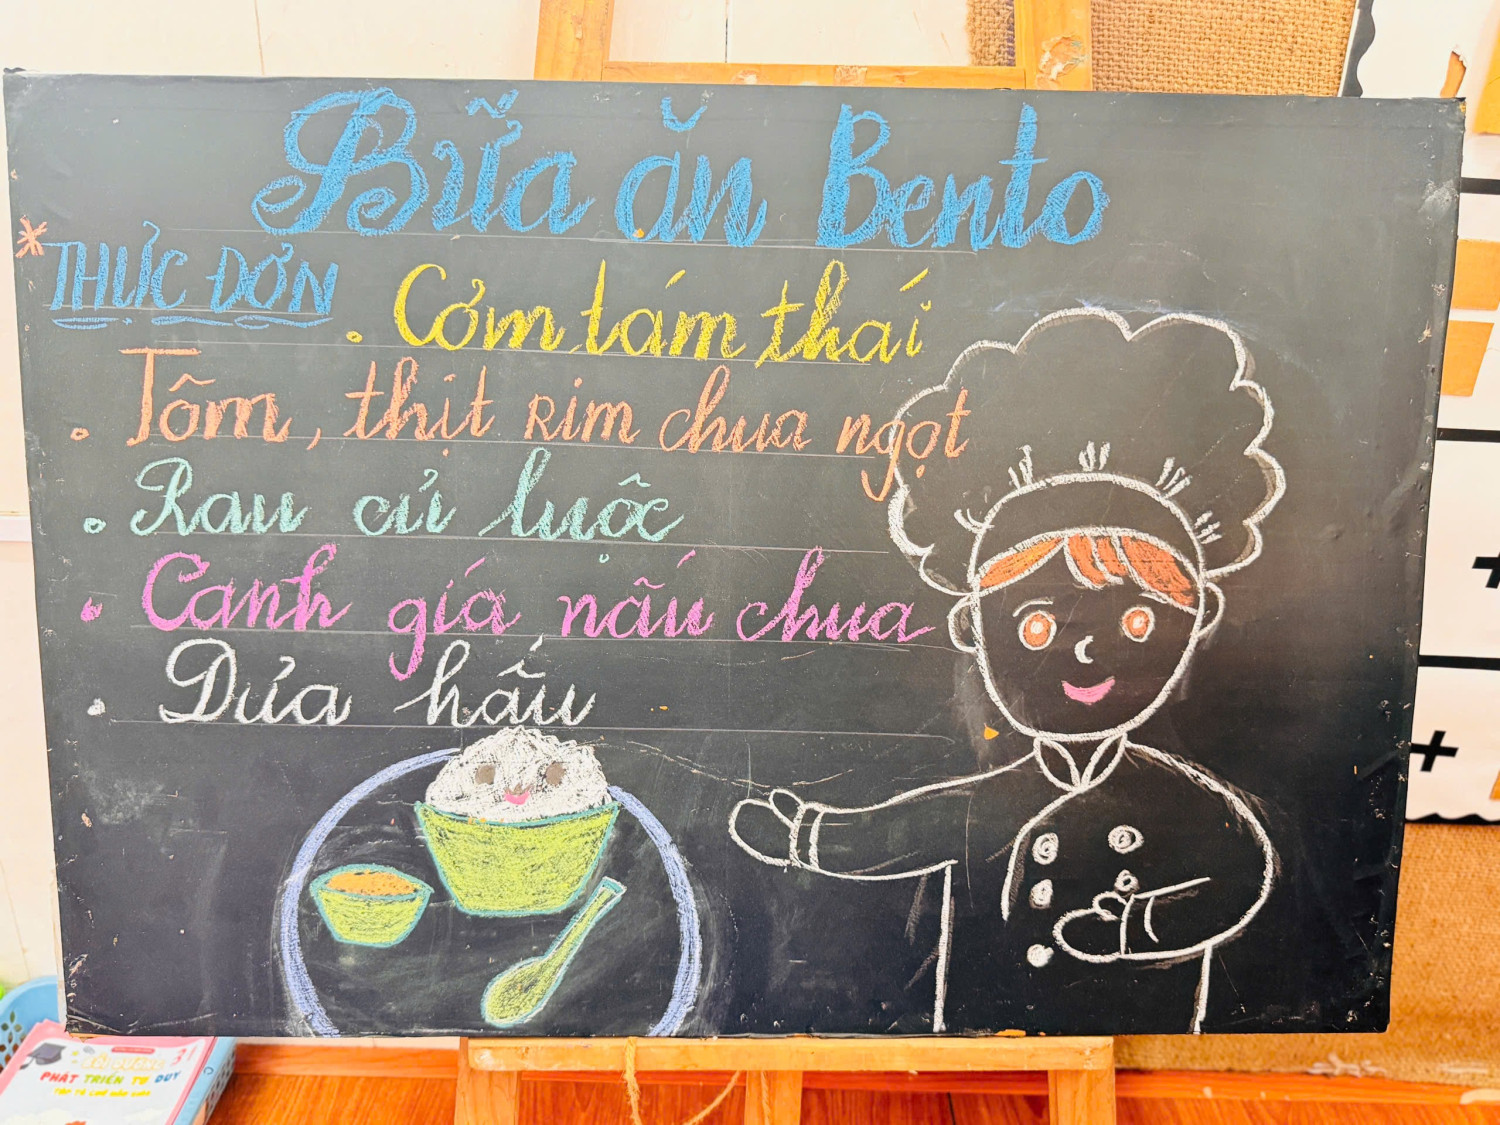 Bữa ăn Bento
* THỰC ĐƠN
. Cơm tám thái
. Tôm, thịt Rim chua ngọt
. Rau củ luộc
. Canh giá nấu chua
. Dưa hấu
PHÁT TRIỂN TƯ DUY